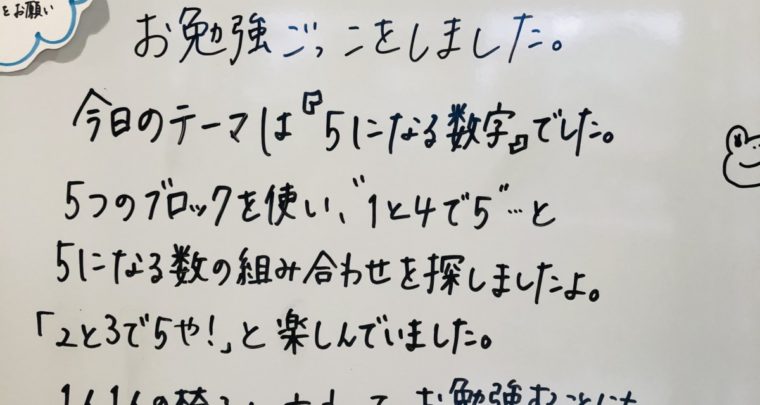 をお願い
お勉強ごっこをしました。
今日のテーマは『5になる数字』でした。
5つのブロックを使い、"1と4で5"…と
5になる数の組み合わせを探しましたよ。
「2と3で5や!」と楽しんでいました。
1人1人の椅子に お勉強することにも